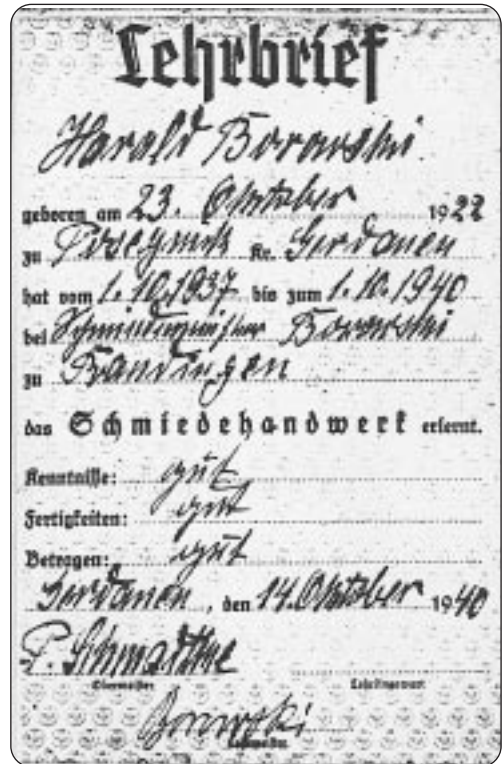 Lehrbrief
Harald Borowski
geboren am 23. Oktober 1922
zu Posegnick Kr. Gerdauen
hat vom 1. 10. 1937 bis zum 1. 10. 1940
bei Schmiedemeister Borowski
zu Bandingen
das Schmiedehandwerk erlernt.
Kenntnisse: gut
Fertigkeiten: gut
Betragen: gut
Gerdauen, den 14. Oktober 1940
Obermeister Lehrlingswart
Borowski
Lehrmeister